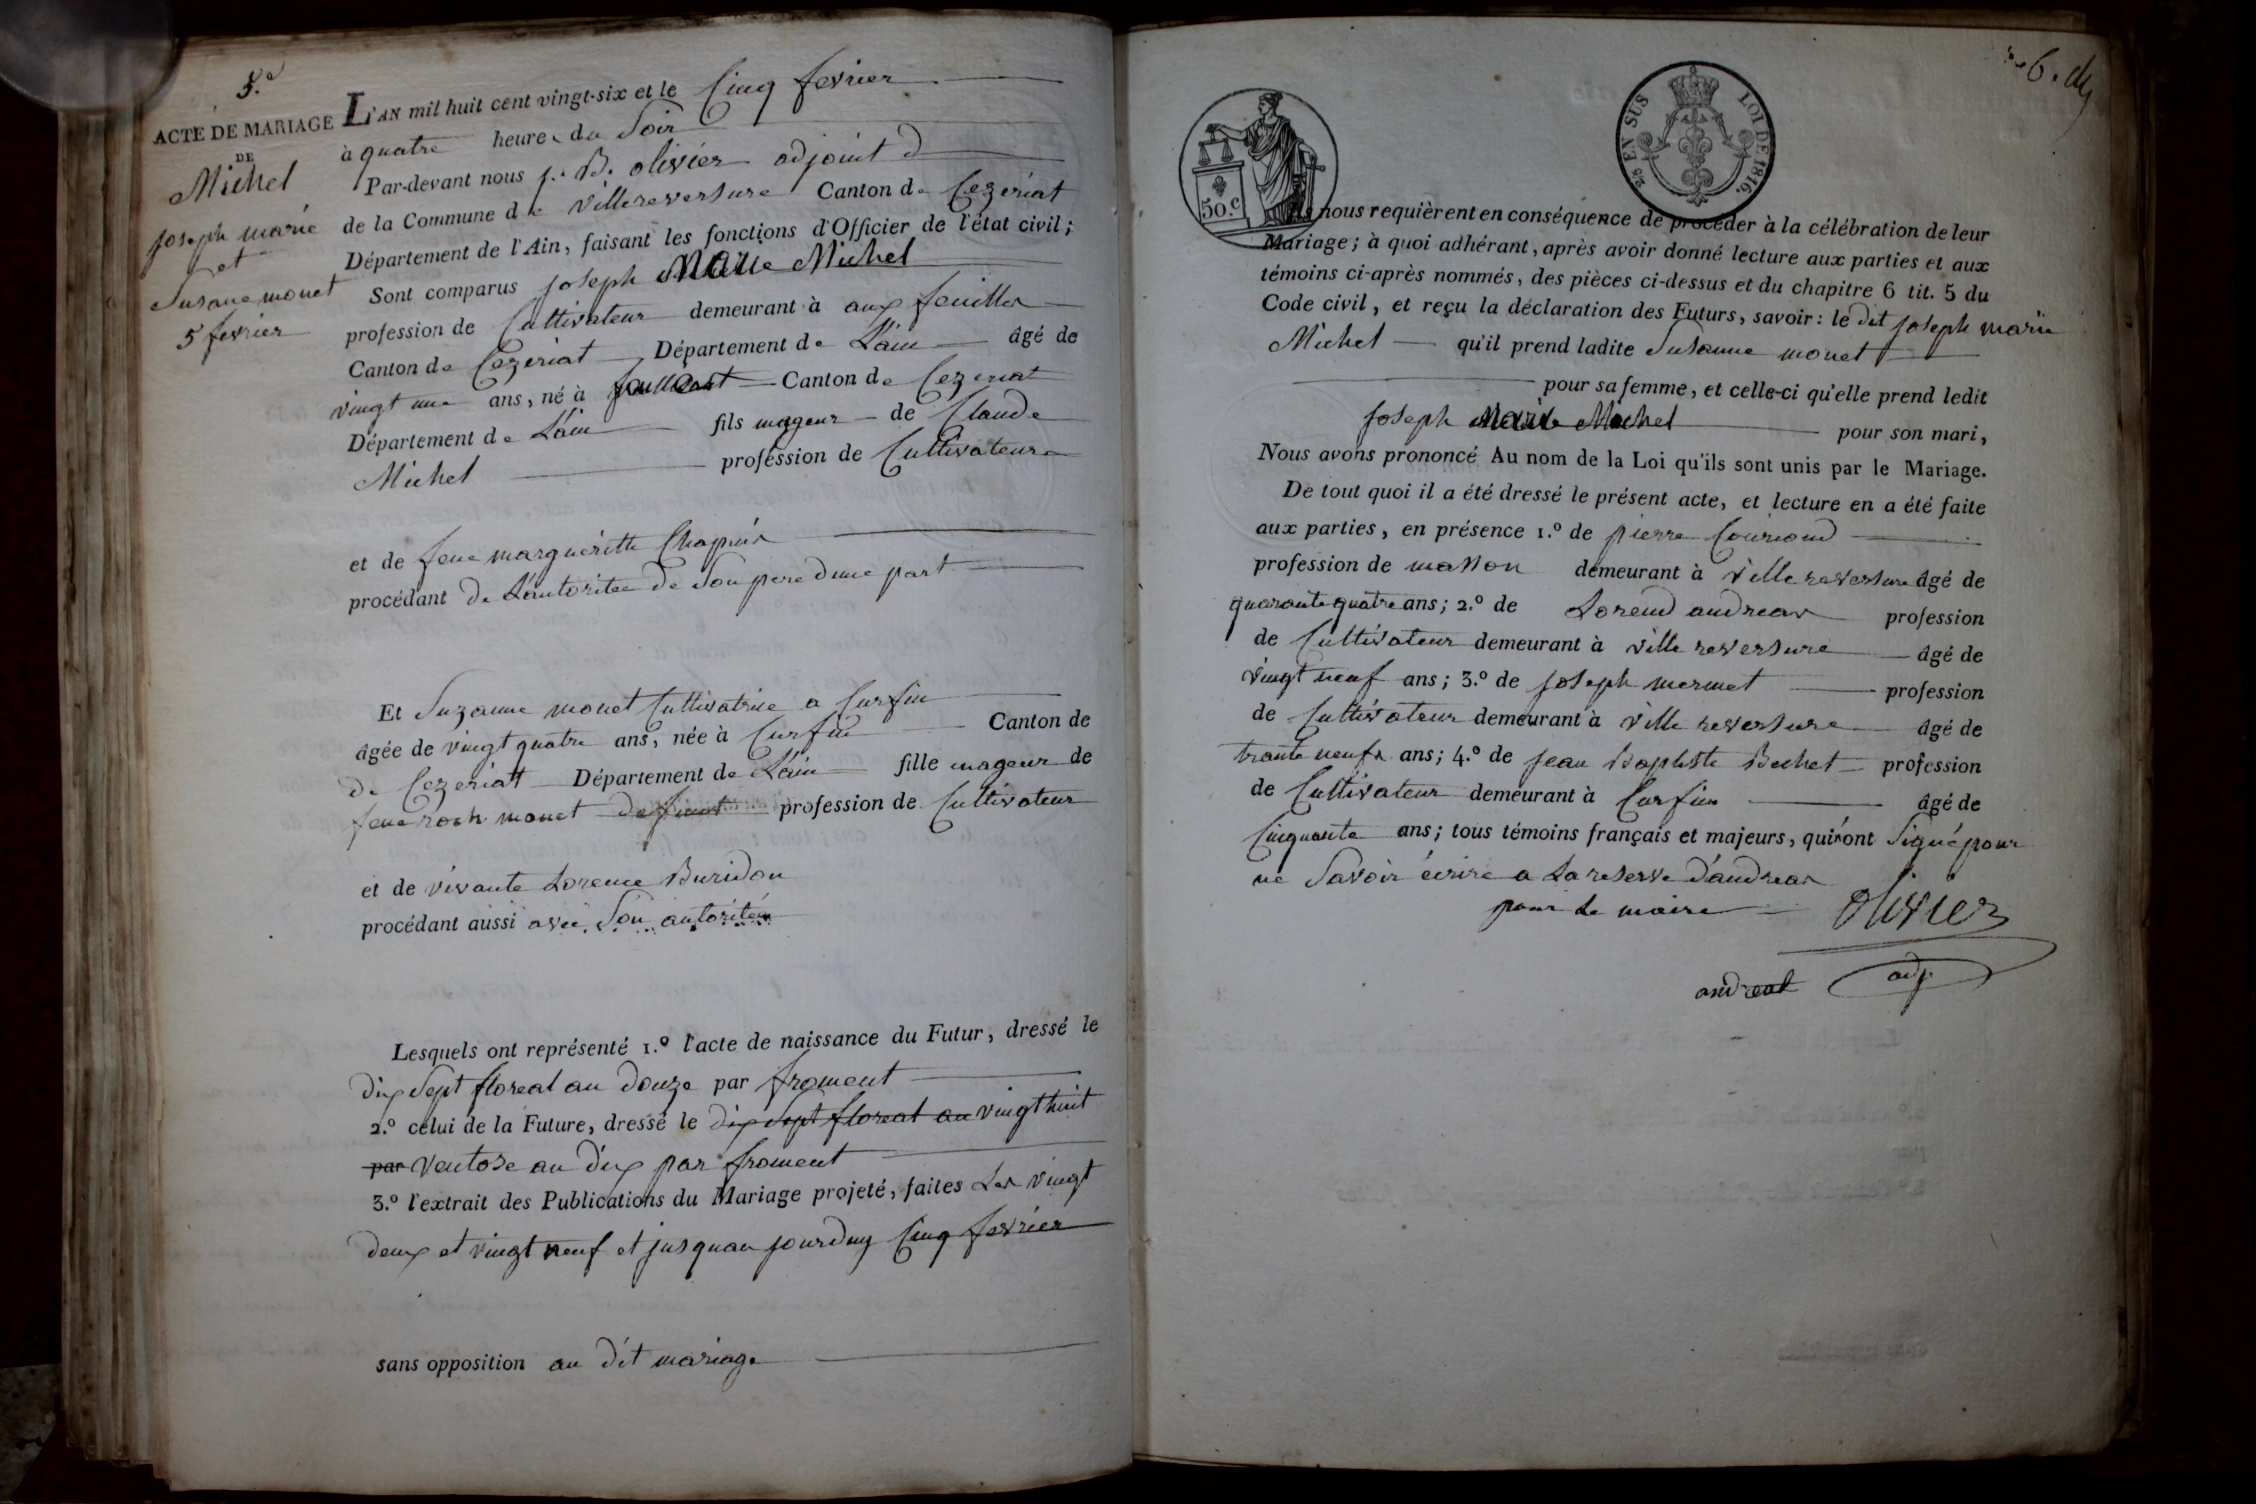 5.e
ACTE DE MARIAGE
DE
Michel
joseph marie
et
Susane monet
5 fevrier
L'AN mil huit cent vingt-six et le Cinq fevrier
à quatre heures du Soir
Par-devant nous j. B. olivier adjoint d
de la Commune de villereversure Canton de Cezeriat
Département de l'Ain, faisant les fonctions d'Officier de l'état civil;
Sont comparus joseph Marie Michel
profession de Cultivateur demeurant à aux feuilles
Canton de Cezeriat Département de L'ain âgé de
vingt une ans, né à Canton de Cezeriat
Département de L'ain fils mageur de Claude
Michel profession de Cultivateur
et de feue margueritte Chapuis
procédant de L'autoritee de Son pere dune part
Et Suzanne monet Cultivatrice a Curfin
âgée de vingt quatre ans, née à Curfin Canton de
de Cezeriatt Département de L'ain fille mageur de
feue roch monet defunt profession de Cultivateur
et de vivante Lorence Buridon
procédant aussi avec Son autoritée
Lesquels ont représenté 1.º l'acte de naissance du Futur, dressé le
dix Sept floreal an douze par froment
2.º celui de la Future, dressé le dix Sept floreal an vingt huit
par Ventose an dix par froment
3.º l'extrait des Publications du Mariage projeté, faites Les vingt
deux et vingt neuf et jusquau jourduy Cinq fevrier
sans opposition au dit mariage
6.
50.c
25 EN SUS LOI DE 1816.
Ils nous requièrent en conséquence de procéder à la célébration de leur
Mariage; à quoi adhérant, après avoir donné lecture aux parties et aux
témoins ci-après nommés, des pièces ci-dessus et du chapitre 6 tit. 5 du
Code civil, et reçu la déclaration des Futurs, savoir: le dit joseph marie
Michel qu'il prend ladite Susanne monet
pour sa femme, et celle-ci qu'elle prend ledit
joseph Marie Michel pour son mari,
Nous avons prononcé Au nom de la Loi qu'ils sont unis par le Mariage.
De tout quoi il a été dressé le présent acte, et lecture en a été faite
aux parties, en présence 1.º de pierre Courioud
profession de masson demeurant à ville reversure âgé de
quarante quatre ans; 2.º de Lorend andreas profession
de Cultivateur demeurant à ville reversure âgé de
vingt neuf ans; 3.º de joseph mermet profession
de Cultivateur demeurant à ville reversure âgé de
trante neufs ans; 4.º de jean Baptiste Bechet profession
de Cultivateur demeurant à Curfin âgé de
Cinquante ans; tous témoins français et majeurs, qui n'ont Signé pour
ne Savoir écrire a La reserve d'andreas
pour Le maire olivier
andreas adj